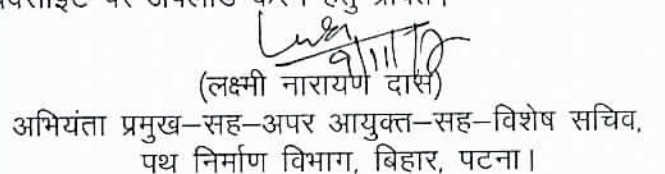 पर अपलोड करने हेतु प्रेषित।
9/11/12
(लक्ष्मी नारायण दास)
अभियंता प्रमुख–सह–अपर आयुक्त–सह–विशेष सचिव,
पथ निर्माण विभाग, बिहार, पटना।